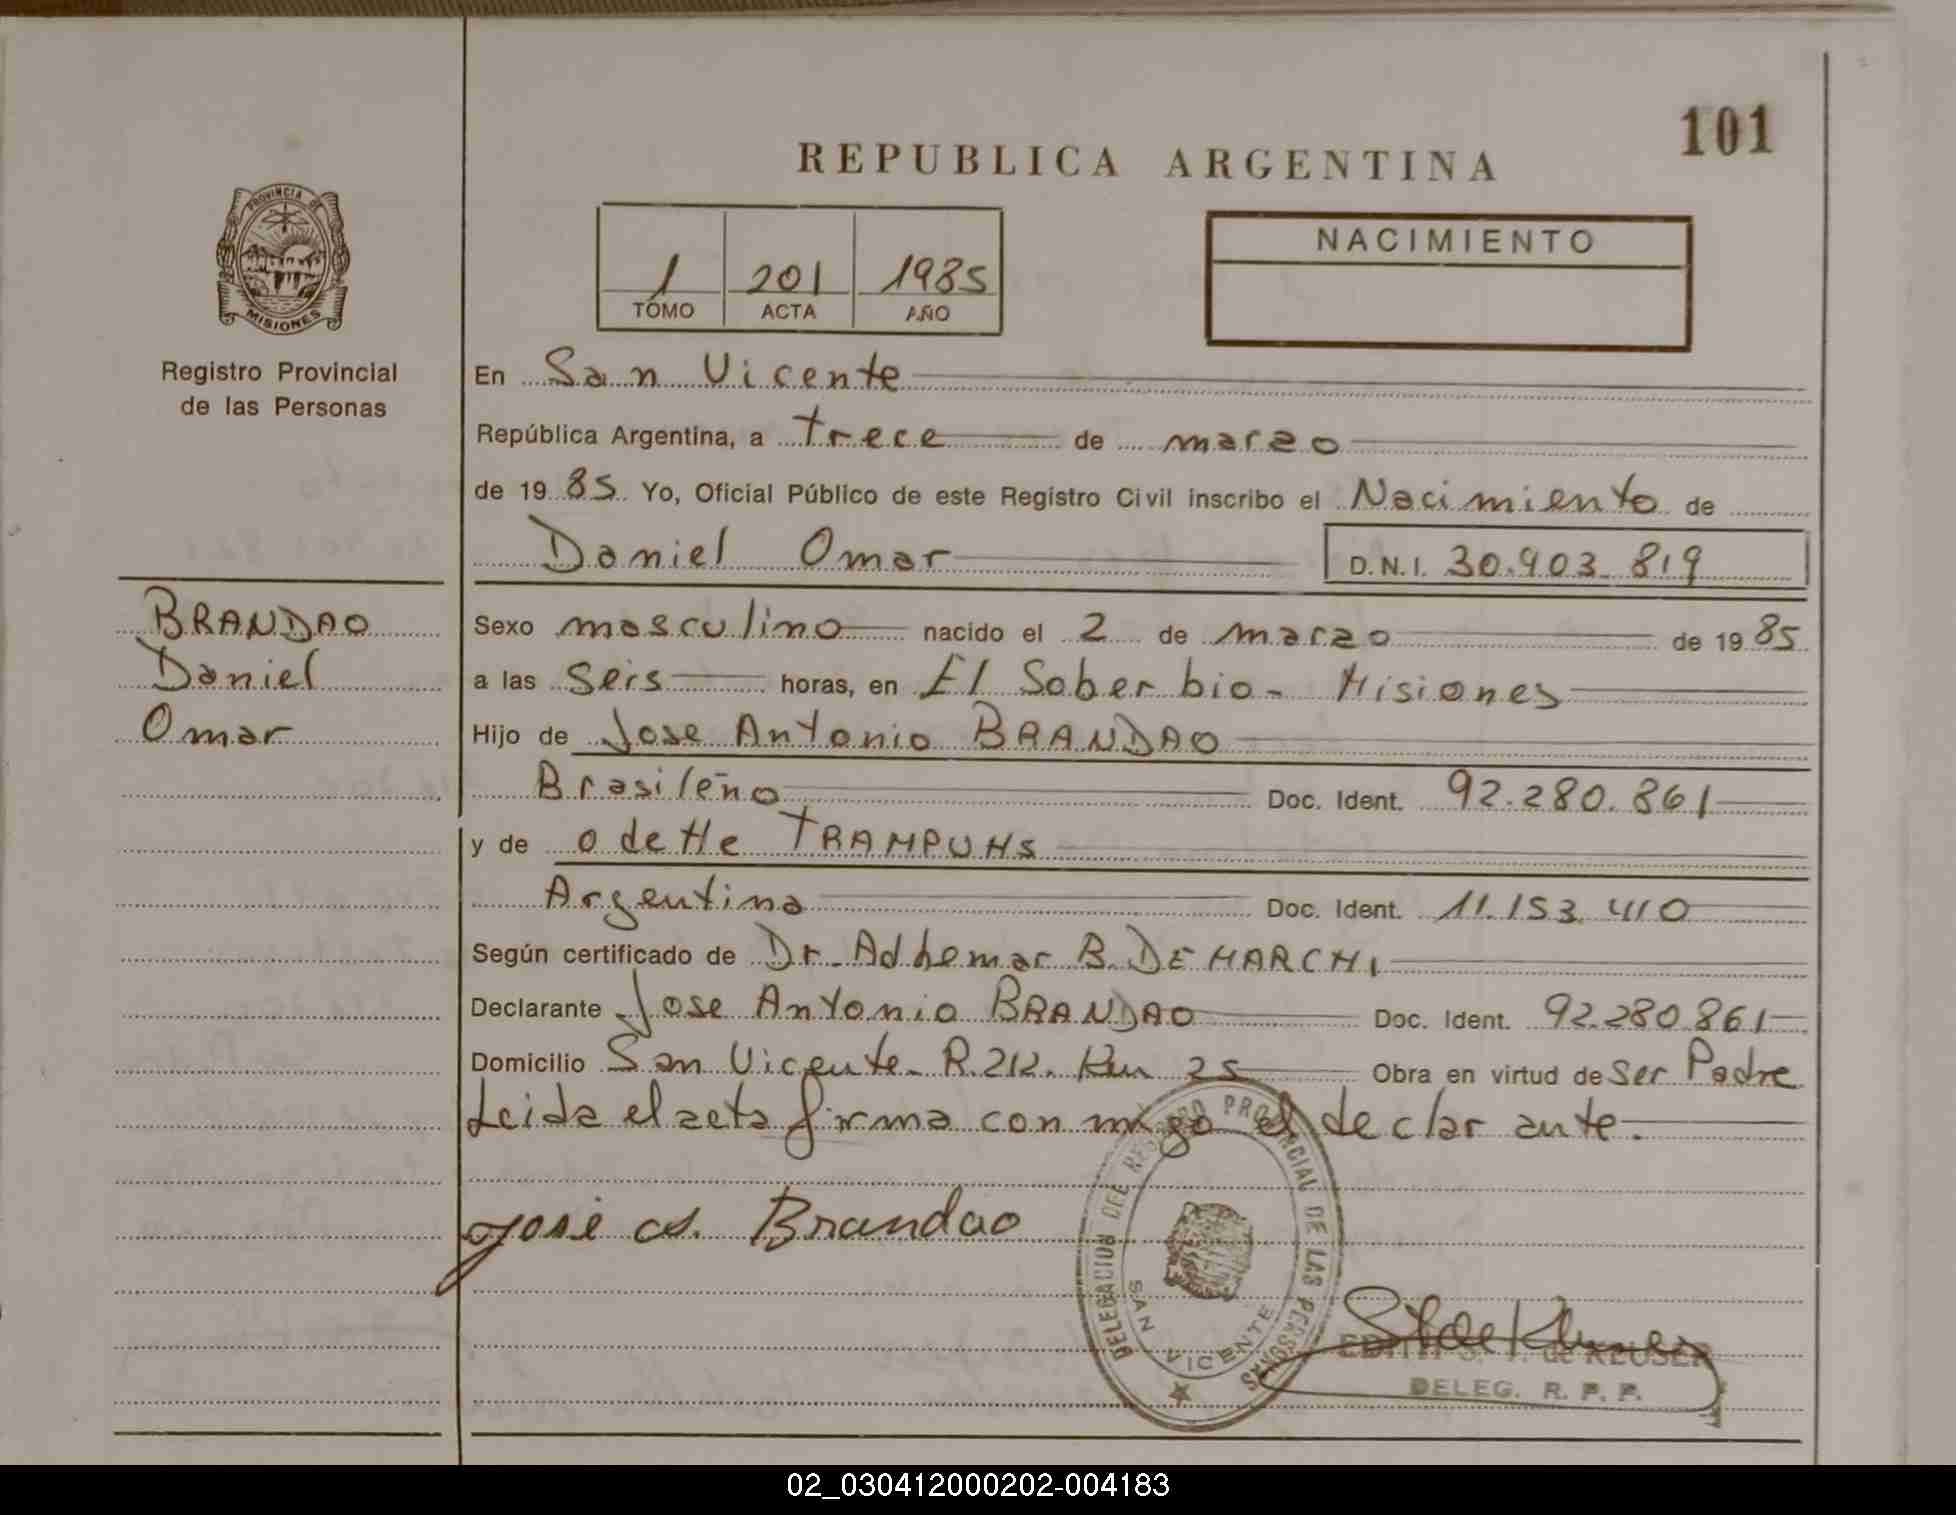 101
REPUBLICA ARGENTINA
PROVINCIA DE
MISIONES
Registro Provincial
de las Personas
1 201 1985
TOMO ACTA AÑO
NACIMIENTO
En San Vicente
República Argentina, a trece de marzo
de 19 85 Yo, Oficial Público de este Registro Civil inscribo el Nacimiento de
Daniel Omar D.N.I. 30.903.819
BRANDAO
Daniel
Omar
Sexo masculino nacido el 2 de marzo de 19 85
a las seis horas, en El Soberbio - Misiones
Hijo de Jose Antonio BRANDAO
Brasileño Doc. Ident. 92.280.861
y de Odette TRAMPUHS
Argentina Doc. Ident. 11.153.410
Según certificado de Dr. Adhemar B. DE MARCHI
Declarante Jose Antonio BRANDAO Doc. Ident. 92.280.861
Domicilio San Vicente - R. 212. Km 25 Obra en virtud de Ser Padre
Leida el acta firma conmigo el declarante.
José A. Brandao
DELEGACION DEL REGISTRO PROVINCIAL DE LAS PERSONAS
SAN VICENTE
EDITH S. de KEUSER
DELEG. R. P. P.
02_030412000202-004183